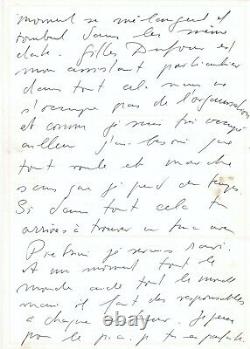 moment se mélangent et
tombent dans les même
date. Gilles Dufour est
mon assistant particulier
dans tout cela mais ne
s'occupe pas de l'organisation
et comme je suis très occupé
ailleurs j'ai besoin que
tout roule et marche
sans que je perde du temps
Si dans tout cela tu
arrives à trouver un truc avec
je serais ravi.
A un moment tout le
monde aide tout le monde
mais il faut des responsables
à chaque
pour le p.a.p. tu es parfaite
© ebay